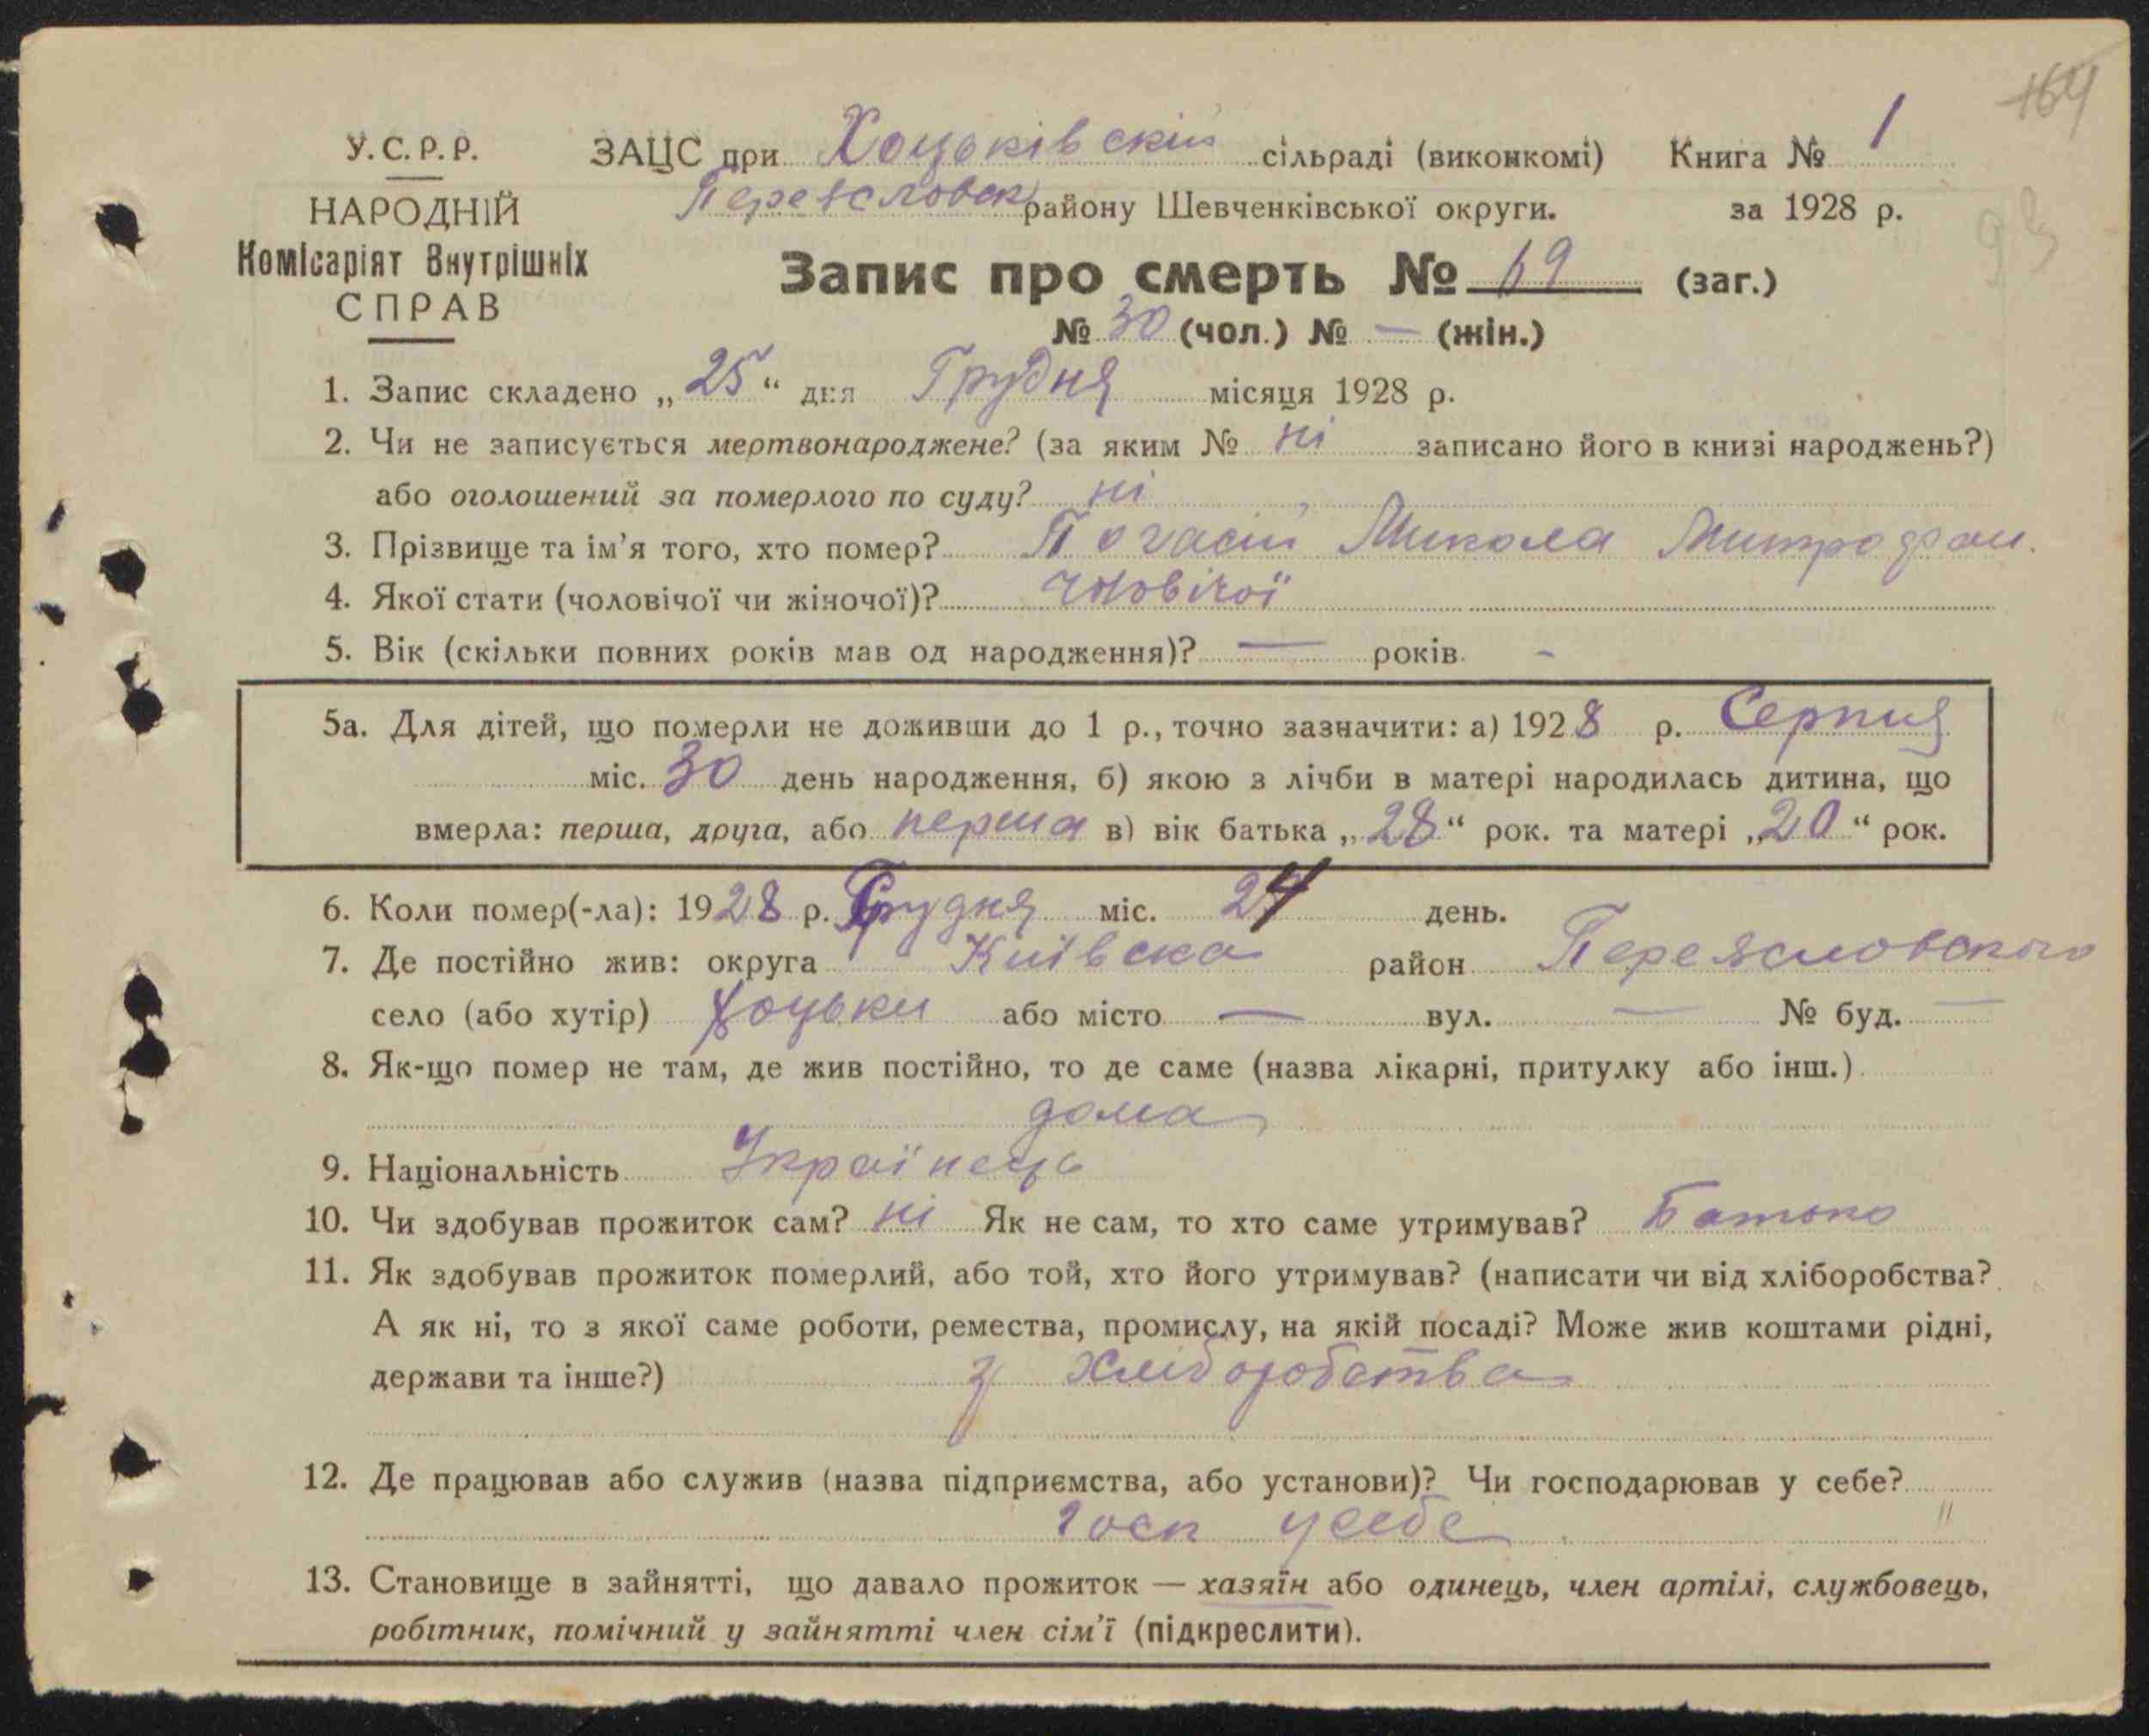 164
У.С.Р.Р. ЗАЦС при Хоцьківскій сільраді (виконкомі) Книга № 1
НАРОДНІЙ Переясловск району Шевченківської округи. за 1928 р.
Комісаріят Внутрішніх
СПРАВ
Запис про смерть № 69 (заг.)
№ 30 (чол.) № — (жін.)
1. Запис складено „25“ дня Грудня місяця 1928 р.
2. Чи не записується мертвонароджене? (за яким № ні записано його в книзі народжень?)
або оголошений за померлого по суду? ні
3. Прізвище та ім’я того, хто помер? Погасій Микола Митрофан.
4. Якої стати (чоловічої чи жіночої)? чоловічої
5. Вік (скільки повних років мав од народження)? — років. -
5а. Для дітей, що померли не доживши до 1 р., точно зазначити: а) 1928 р. Серпня
міс. 30 день народження, б) якою з лічби в матері народилась дитина, що
вмерла: перша, друга, або перша в) вік батька „28“ рок. та матері „20“ рок.
6. Коли помер(-ла): 1928 р. Грудня міс. 24 день.
7. Де постійно жив: округа Київска район Переясловского
село (або хутір) Хоцьки або місто — вул. — № буд. —
8. Як-що помер не там, де жив постійно, то де саме (назва лікарні, притулку або інш.)
дома
9. Національність Українець
10. Чи здобував прожиток сам? ні Як не сам, то хто саме утримував? Батько
11. Як здобував прожиток померлий, або той, хто його утримував? (написати чи від хліборобства?
А як ні, то з якої саме роботи, ремества, промислу, на якій посаді? Може жив коштами рідні,
держави та інше?) з хліборобства
12. Де працював або служив (назва підприємства, або установи)? Чи господарював у себе?
госп у себе
13. Становище в зайнятті, що давало прожиток — хазяїн або одинець, член артілі, службовець,
робітник, помічний у зайнятті член сім’ї (підкреслити).